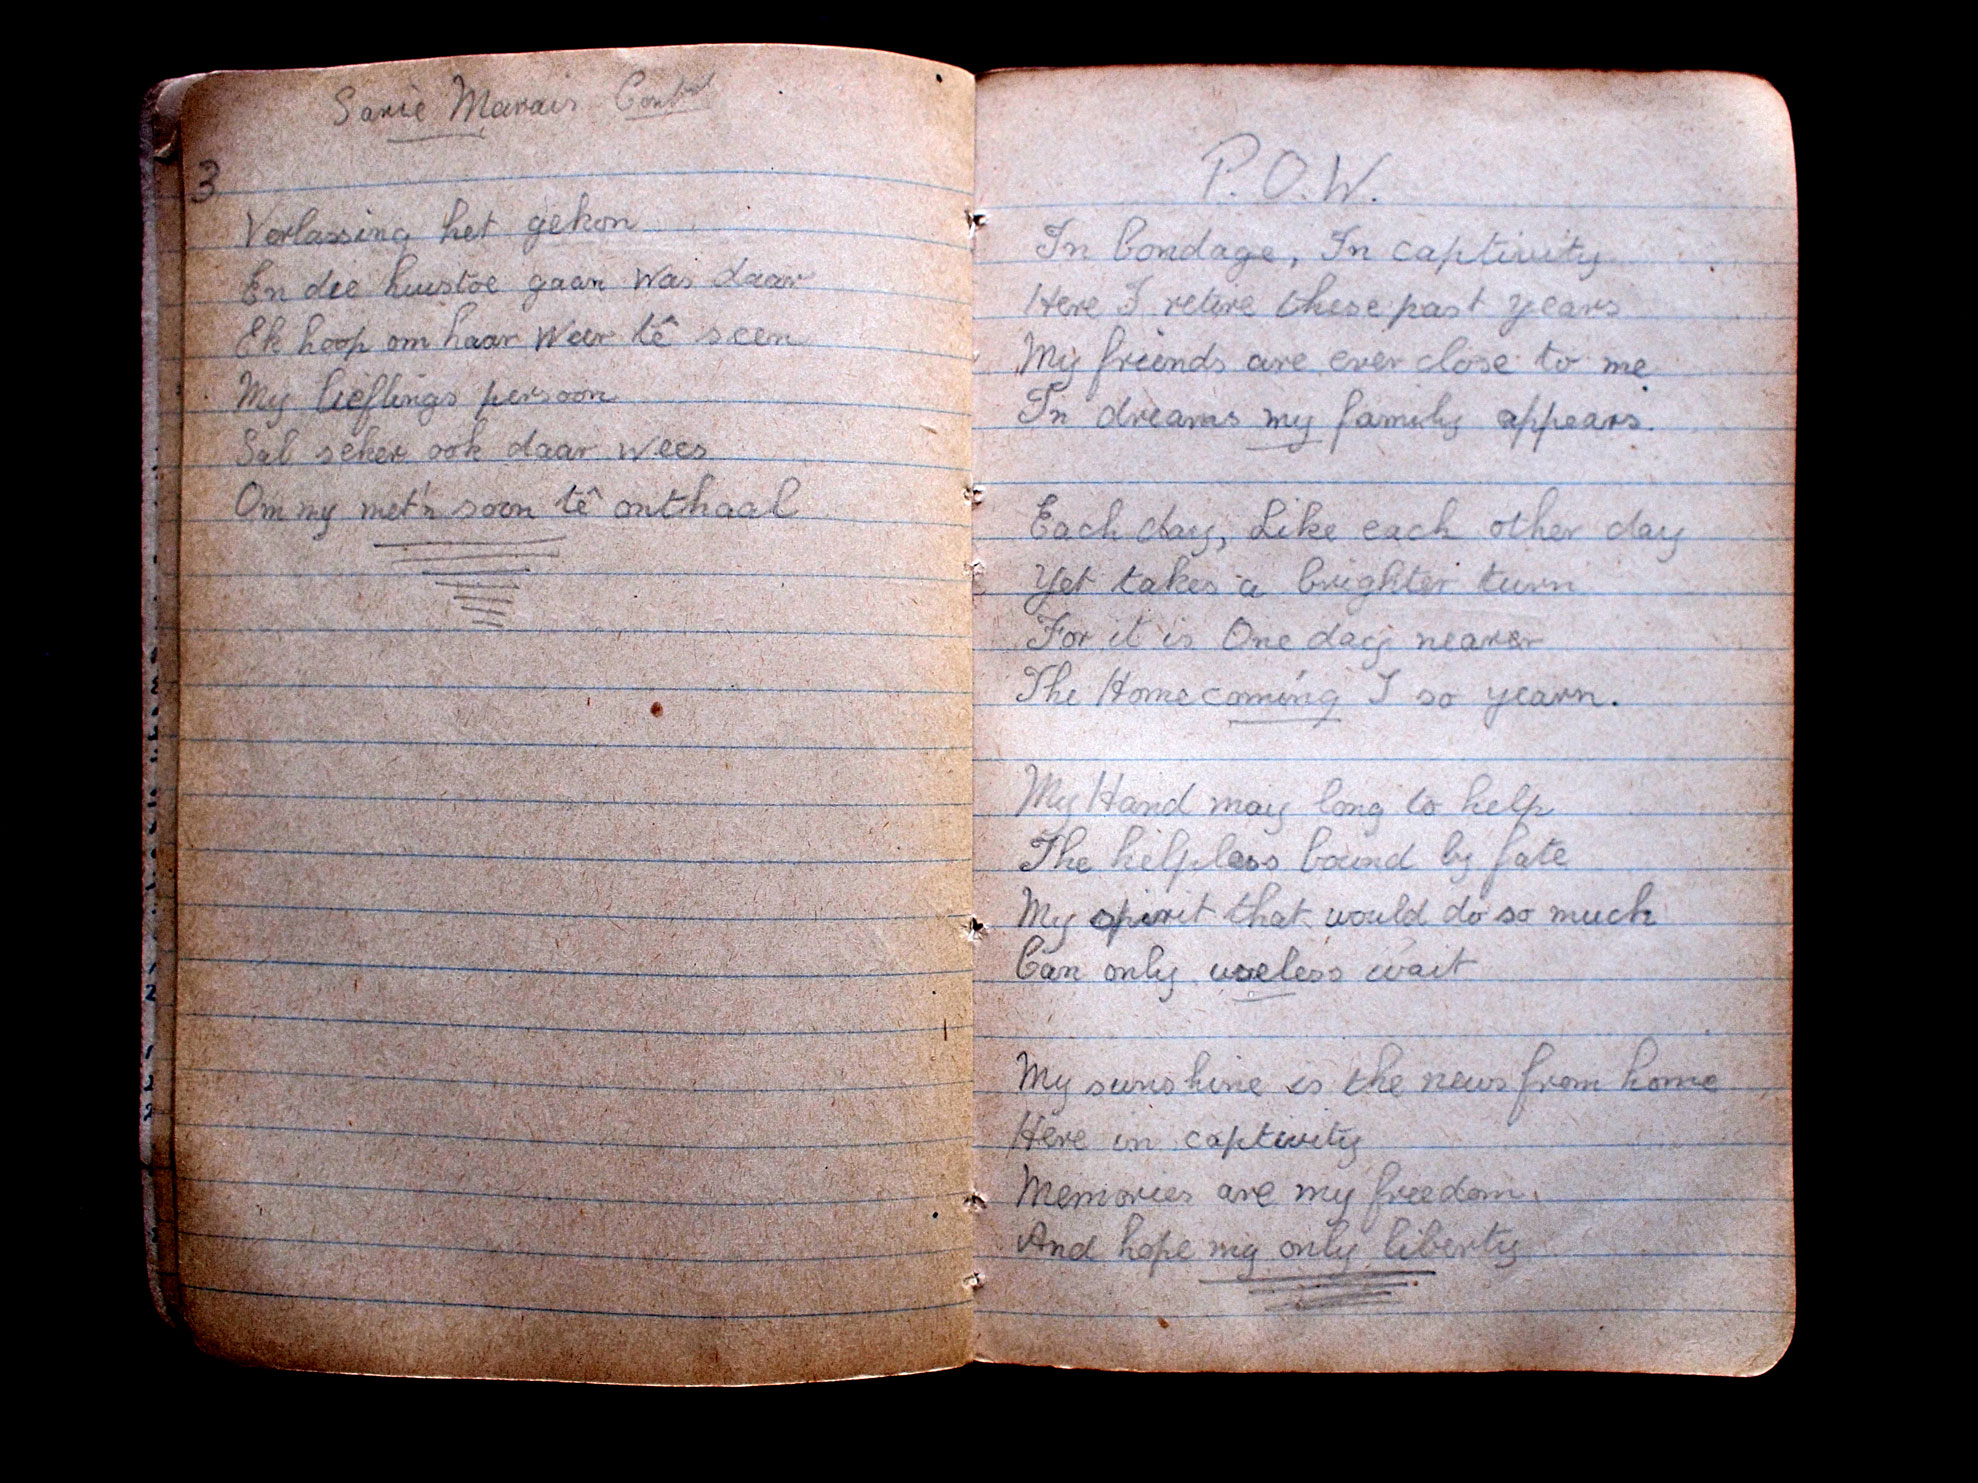 Sarie Marais Contd
3
Verlassing het gekon
En die huistoe gaan was daar
Ek hoop om haar weer tê seen
My lieflings persoon
Sal seker ook daar wees
Om my met'n soon tê onthaal
P.O.W.
In bondage, In captivity
Here I retire these past years
My friends are ever close to me
In dreams my family appears.
Each day, Like each other day
Yet takes a brighter turn
For it is One day nearer
The Homecoming I so yearn.
My Hand may long to help
The helpless bound by fate
My spirit that would do so much
Can only useless wait
My sunshine is the news from home
Here in captivity
Memories are my freedom.
And hope my only liberty